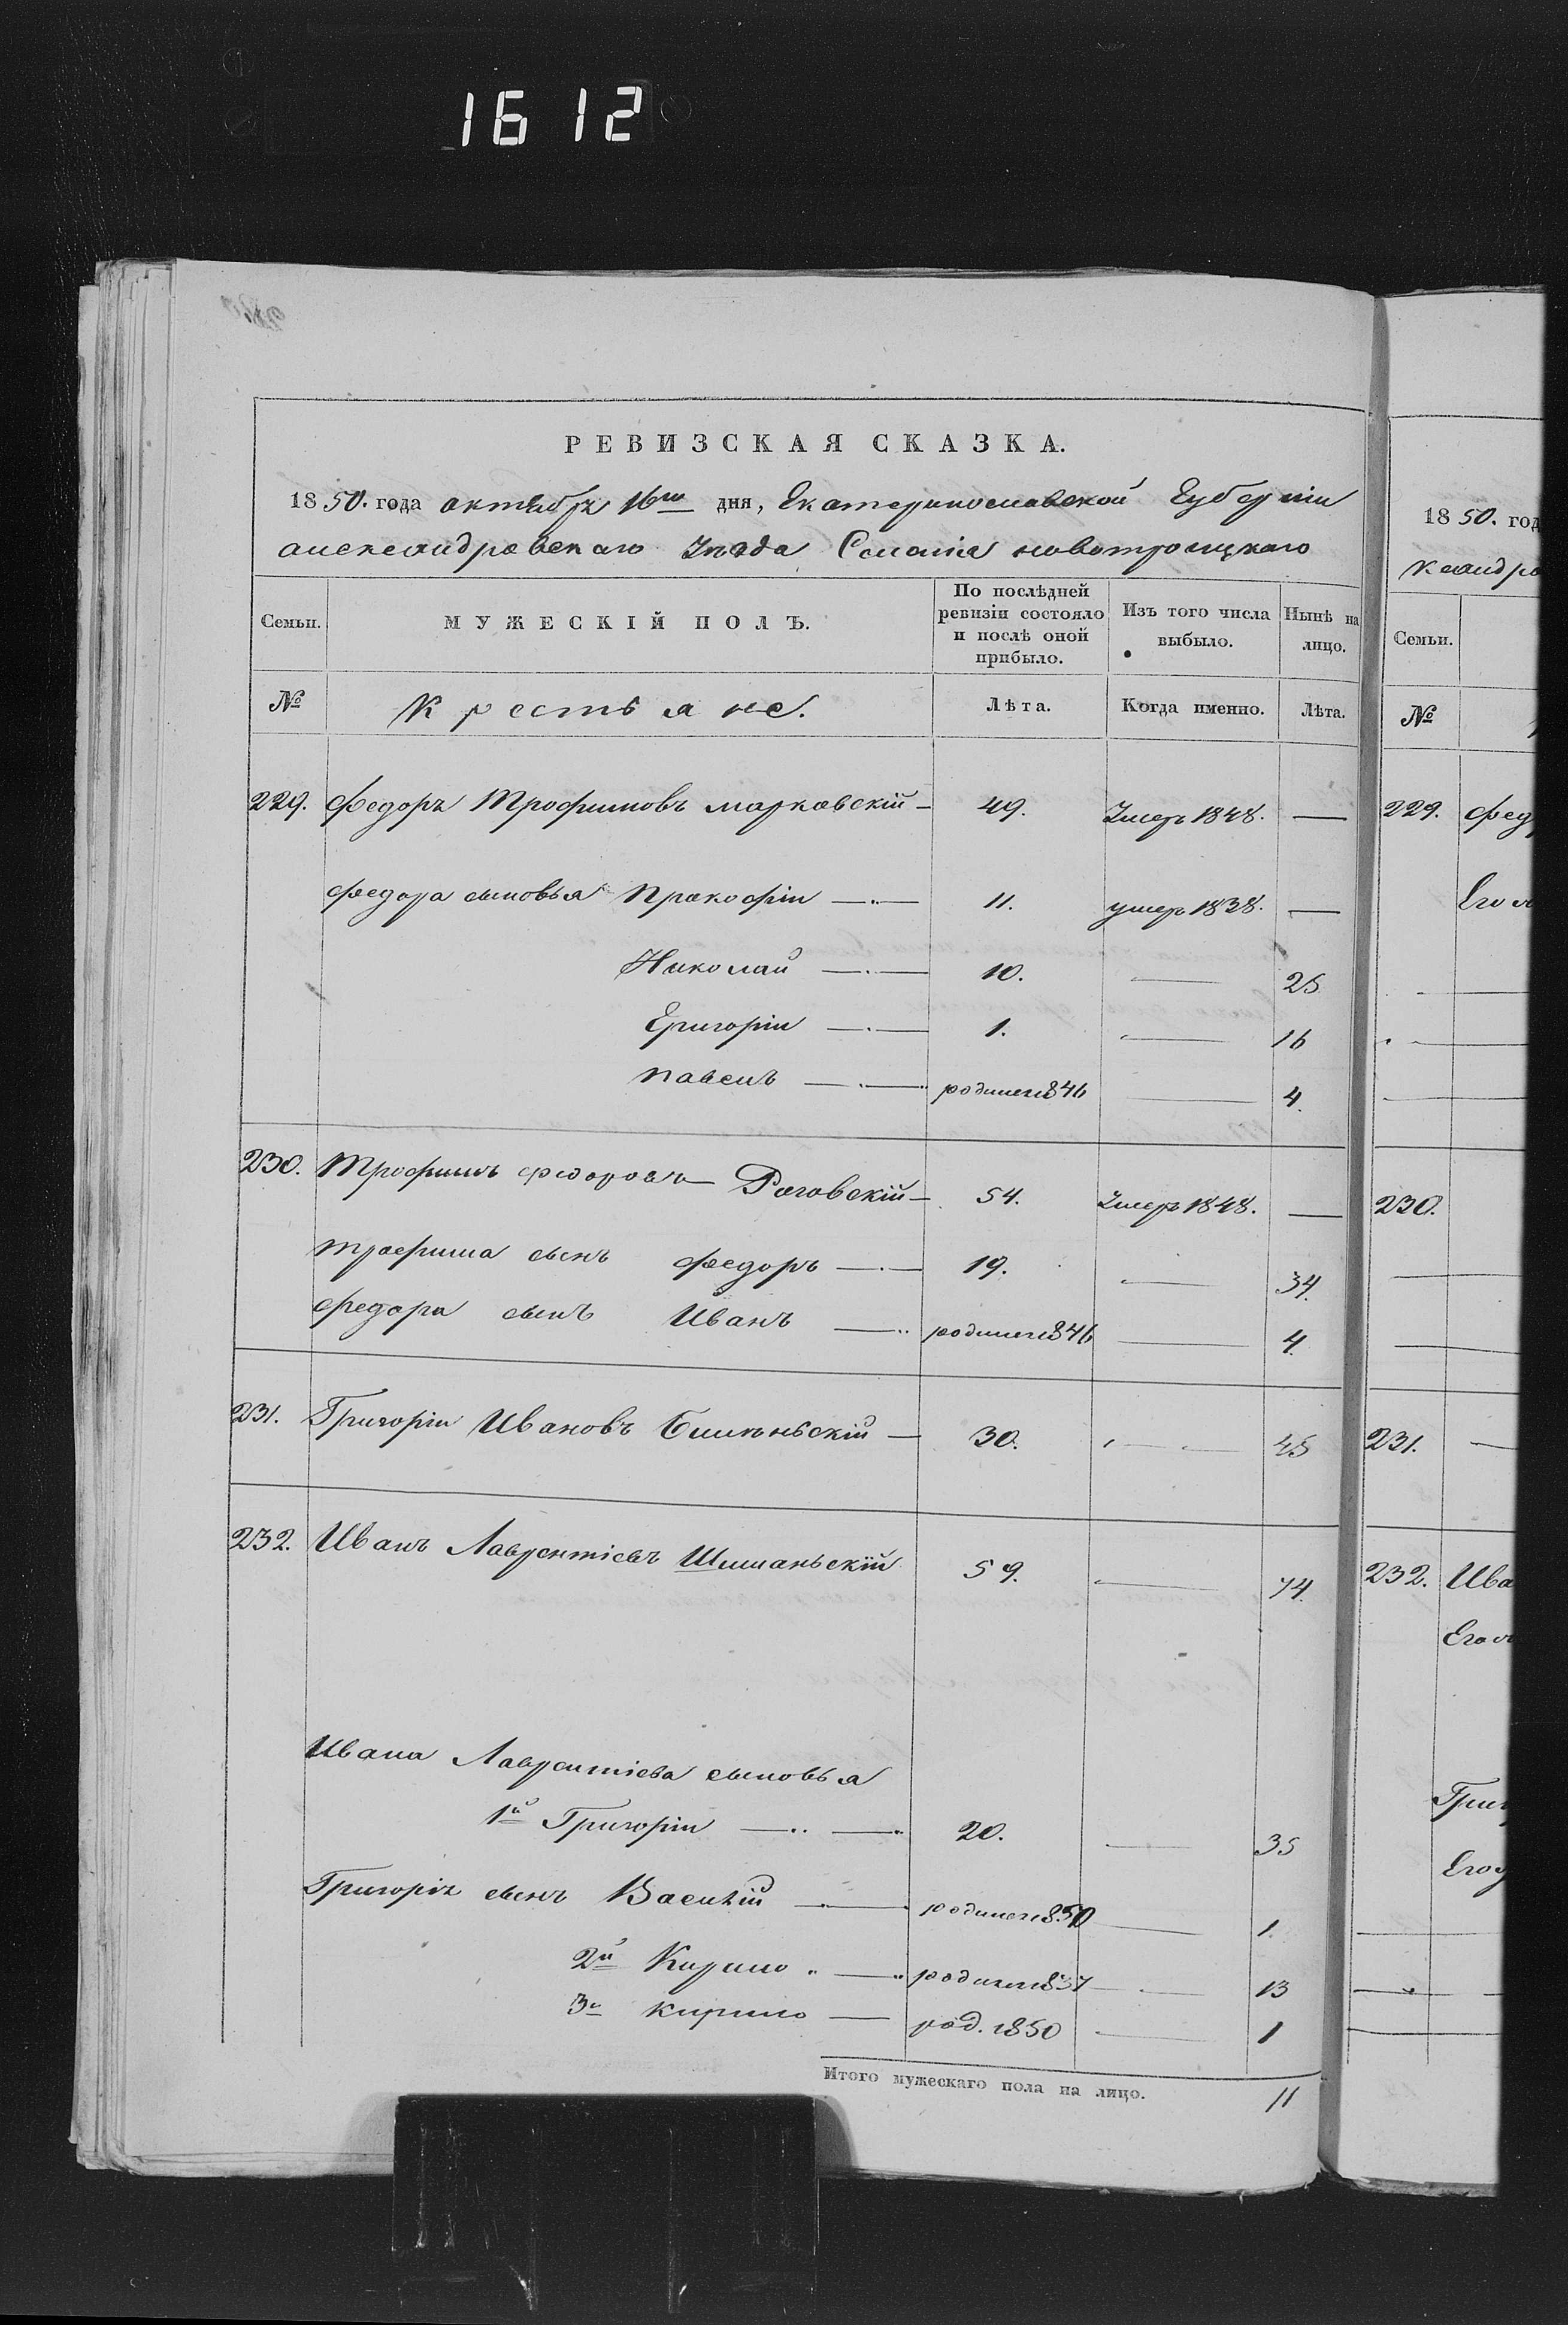 1612
РЕВИЗСКАЯ СКАЗКА.
1850. года октября 16го дня, Екатеринославской Губерніи
александровскаго Уѣзда Селенія новотроицкаго
Семьи.
МУЖЕСКІЙ ПОЛЪ.
По послѣдней ревизіи состояло и послѣ оной прибыло.
Изъ того числа выбыло.
Нынѣ на лицо.
№ Крестьяне. Лѣта. Когда именно. Лѣта.
229. Федоръ Трофимовъ марковскій — 49. Умеръ 1848. —
Федора сыновья Прокофіи — 11. умеръ 1838. —
Николай — 10. — 25
Григоріи — 1. — 16
павелъ — родился 1846 — 4.
230. Трофимъ федоровъ Роговскій — 54. Умеръ 1848. —
трофима сынъ федоръ — 19. — 34.
федора сынъ Иванъ — родился 1846 — 4.
231. Григоріи Ивановъ — 30. — 45
232. Иванъ Лаврентіевъ Шиманьскій 59. — 74.
Ивана Лаврентіева сыновья
1й Григоріи — 20. — 35
Григорія сынъ Василій — родился 1850 — 1.
2й Кирило — родился 1837 — 13
3й кирило — род. 1850 — 1
Итого мужескаго пола на лицо. 11
1850. год
ксандро
Семьи.
№
229. Фед
Его
230.
231. —
232. Ива
Его
Григ
Его